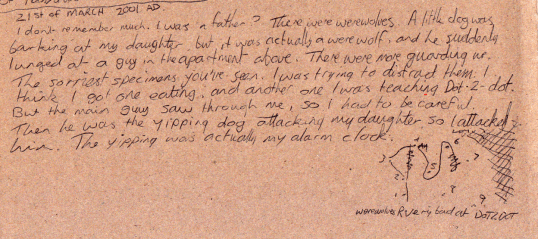 21st of MARCH 2001 AD.
I dont remember much. I was a father? There were werewolves. A little dog was
barking at my daughter but it was actually a werewolf, and he suddenly
lunged at a guy in the apartment above. There were more guarding us.
The sorriest specimens you've seen. I was trying to distract them; I
think I got one eating, and another one I was teaching Dot-2-dot.
But the main guy saw through me, so I had to be careful.
Then he was the yipping dog attacking my daughter so I attacked
him. The yipping was actually my alarm clock.
werewolves R very bad at DOT2DOT